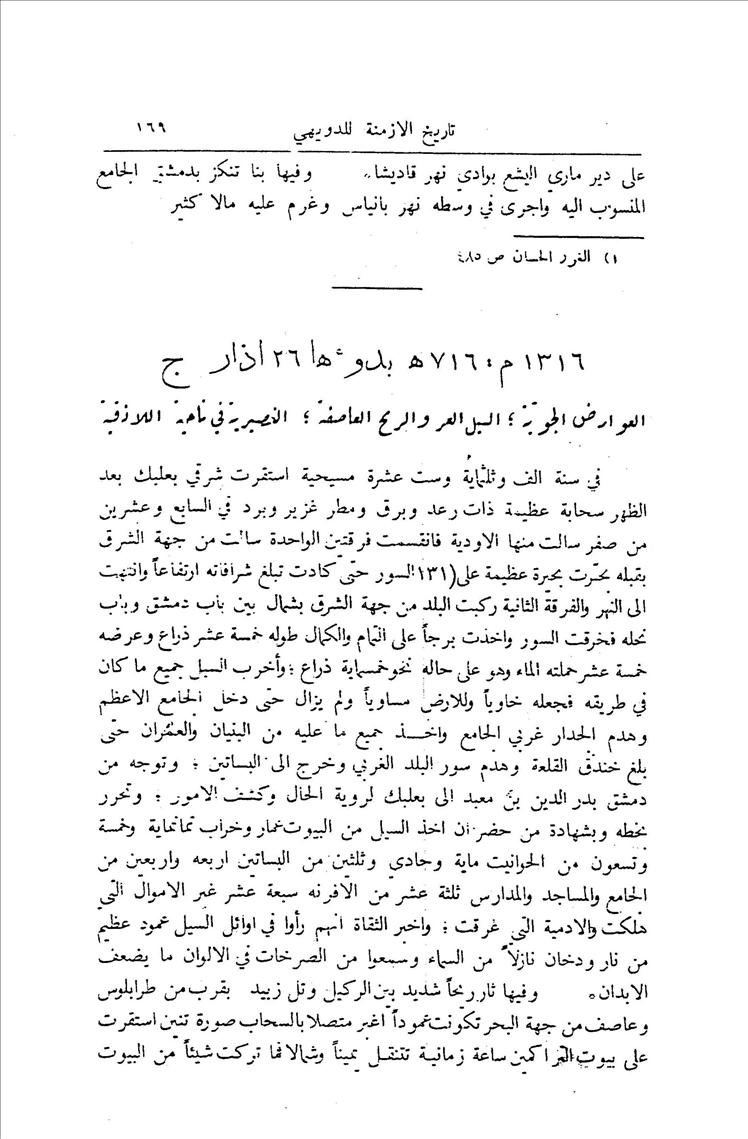 تاريخ الازمنة للدويهي ١٦٩
على دير ماري اليشع بوادي نهر قاديشا. وفيها بنا تنكز بدمشق الجامع
المنسوب اليه واجرى في وسطه نهر بانياس وغرم عليه مالا كثير
١) الغرر الحسان ص ٤٨٥
١٣١٦ م : ٧١٦ ه بدوءها ٢٦ اذار ج
العوارض الجوية ؛ السيل العر والريح العاصفة ؛ النصيرية في ناحية اللاذقية
في سنة الف وثلثماية وست عشرة مسيحية استقرت شرقي بعلبك بعد
الظهر سحابة عظيمة ذات رعد وبرق ومطر غزير وبرد في السابع وعشرين
من صفر سالت منها الاودية فانقسمت فرقتين الواحدة سالت من جهة الشرق
بقبله بحّرت بحيرة عظيمة على (١٣١ السور حتى كادت تبلغ شرافاته ارتفاعاً وانتهت
الى النهر والفرقة الثانية ركبت البلد من جهة الشرق بشمال بين باب دمشق وباب
نحله فخرقت السور واخذت برجاً على التمام والكمال طوله خمسة عشر ذراع وعرضه
خمسة عشر حملته الماء وهو على حاله نحو خمسماية ذراع ؛ وأخرب السيل جميع ما كان
في طريقه فجعله خاوياً وللارض مساوياً ولم يزال حتى دخل الجامع الاعظم
وهدم الجدار غربي الجامع واخذ جميع ما عليه من البنيان والعمران حتى
بلغ خندق القلعة وهدم سور البلد الغربي وخرج الى البساتين ؛ وتوجه من
دمشق بدر الدين بن معبد الى بعلبك لروية الحال وكشف الامور ؛ وتحرر
بخطه وبشهادة من حضر ان اخذ السيل من البيوت عمار وخراب ثمانماية وخمسة
وتسعون من الحوانيت ماية وحادي وثلثين من البساتين اربعه واربعين من
الجامع والمساجد والمدارس ثلثة عشر من الافرنه سبعة عشر غير الاموال التي
هلكت والادمية التي غرقت ؛ واخبر الثقاة انهم رأوا في اوائل السيل عمود عظيم
من نار ودخان نازلاً من السماء وسمعوا من الصرخات في الالوان ما يضعف
الابدان. وفيها ثار ريحاً شديد بين الركيل وتل زبيد بقرب من طرابلوس
وعاصف من جهة البحر تكونت عموداً اغبر متصلا بالسحاب صورة تنين استقرت
على بيوت التراكمين ساعة زمانية تتنقل يميناً وشمالا فما تركت شيئاً من البيوت